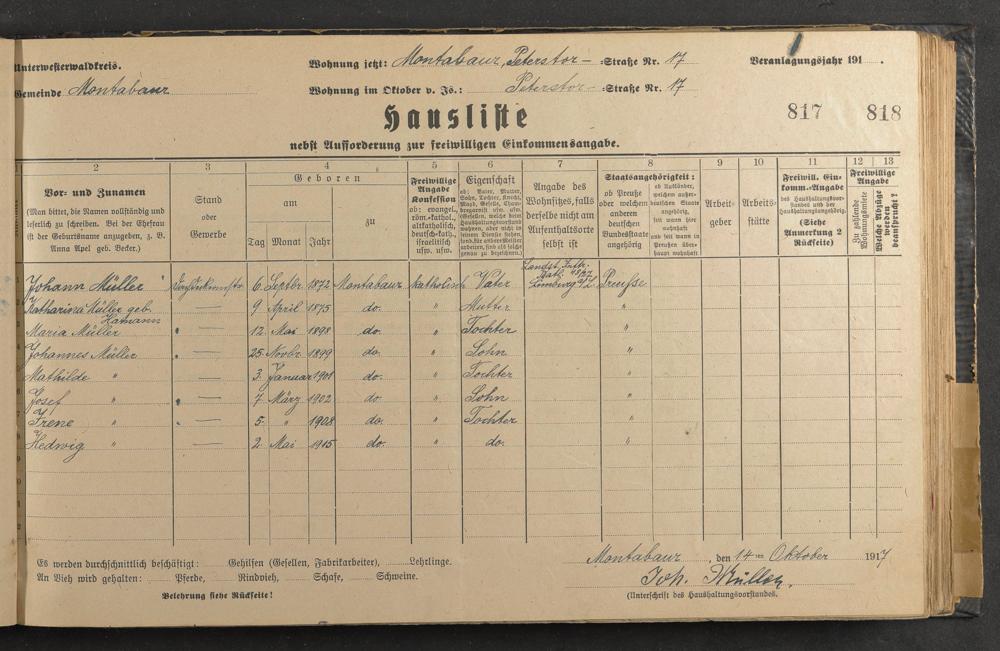 Unterwesterwaldkreis.
Wohnung jetzt: Montabaur, Peterstor- -Straße Nr. 17
Veranlagungsjahr 191 .
Gemeinde Montabaur
Wohnung im Oktober v. Js.: Peterstor- -Straße Nr. 17
Hausliste
817 818
nebst Aufforderung zur freiwilligen Einkommensangabe.
1 2 3 4 5 6 7 8 9 10 11 12 13
Vor- und Zunamen
(Man bittet, die Namen vollständig und
leserlich zu schreiben. Bei der Ehefrau
ist der Geburtsname anzugeben, z. B.
Anna Apel geb. Becker.)
Stand
oder
Gewerbe
Geboren
am
zu
Tag Monat Jahr
Freiwillige
Angabe
Konfession
ob: evangel.,
röm.-kathol.,
altkatholisch,
deutsch-kath.,
israelitisch
usw. usw.
Eigenschaft
ob: Vater, Mutter,
Sohn, Tochter, Knecht,
Angabe des
Wohnsitzes, falls
derselbe nicht am
Aufenthaltsorte
selbst ist
Staatsangehörigkeit:
ob Preuße
oder welchem
anderen
deutschen
Bundesstaate
angehörig
ob Ausländer,
welchem außer-
deutschen Staate
angehörig,
seit wann hier
wohnhaft
und seit wann in
Preußen über-
haupt wohnhaft
Arbeit-
geber
Arbeits-
stätte
Freiwill. Ein-
komm.-Angabe
des Haushaltungsvor-
standes und der
Haushaltungsangehörig.
(Siehe
Anmerkung 2
Rückseite)
Freiwillige
Angabe
Zu zahlende
Wohnungsmiete
Welche Abzüge
werden
beansprucht?
Johann Müller 6. Septbr. 1872 Montabaur katholisch Vater Limburg a/L Preuße
Katharina Müller geb. — 9 April 1875 do. " Mutter "
Hamann
Maria Müller — 12. Mai 1898 do. " Tochter "
Johannes Müller — 25. Novbr. 1899 do. " Sohn "
Mathilde " — 3. Januar 1901 do. " Tochter "
Josef " — 7 März 1902 do. " Sohn "
Irene " — 5. " 1908 do. " Tochter "
Hedwig " — 2. Mai 1915 do. " do. "
Es werden durchschnittlich beschäftigt: Gehilfen (Gesellen, Fabrikarbeiter), Lehrlinge.
An Vieh wird gehalten: Pferde, Rindvieh, Schafe, Schweine.
Belehrung siehe Rückseite!
Montabaur, den 14ten Oktober 1917
Joh. Müller.
(Unterschrift des Haushaltungsvorstandes.